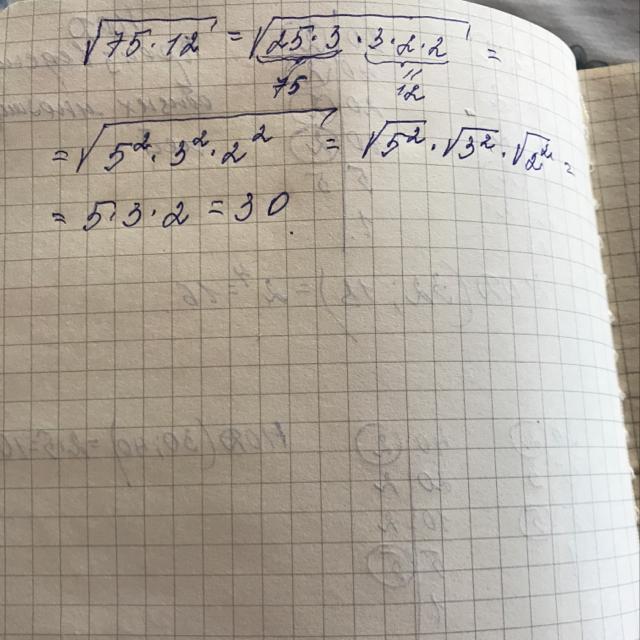 √75·12 = √25·3·3·2·2 =
75 12
= √5²·3²·2² = √5²·√3²·√2² =
= 5·3·2 = 30.